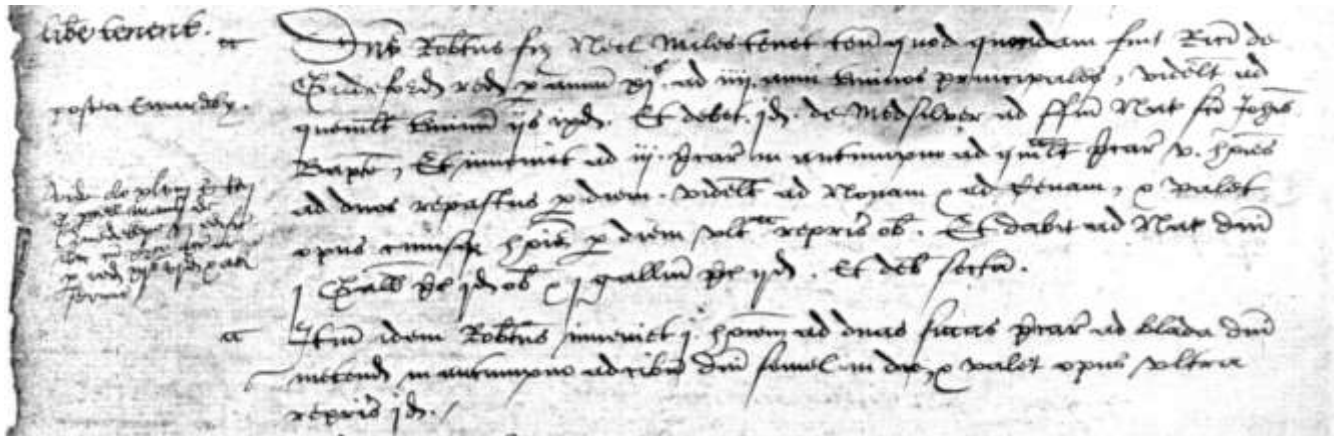 libe tenent.
Dns Robtus fiz Neel Miles tenet ten quod quondam fuit Rici de
Gudeford redd p annum xjs. ad iiij. anni tminos principales, videlt ad
postea Swardby.
quemlt tminum ijs ixd. Et debet. jd. de Medsilver ad ffm Nat sci Johis
Bapte, Et inveniet ad iij. precar in autumpno ad quamlt precar v. hoies
ad duos repastus p diem. videlt ad Nonam & ad Cenam, & valet
opus cuiuslt hois p diem ult repris ob. Et dabit ad Nat dni
j Gall pc jd ob & j gallin pc ijd. Et deb sectam.
Itm idem Robtus inveniet j. hoiem ad duas siccas precar ad blada dni
metend in autumpno ad cibum dni semel in die & valet opus ultra
repris jd.